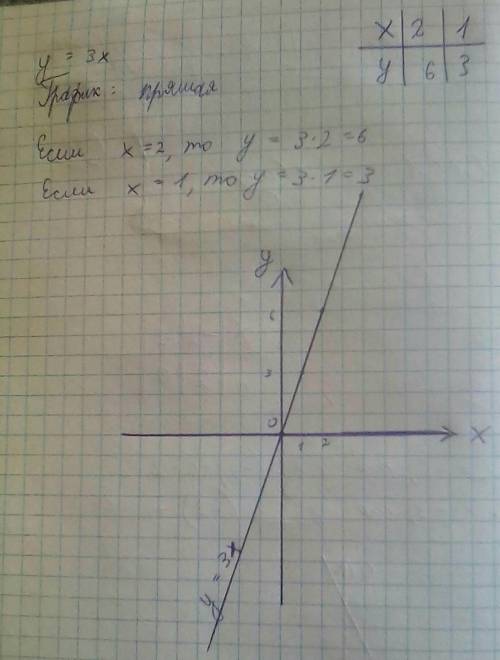 y = 3x
График: прямая
x 2 1
y 6 3
Если x = 2, то y = 3·2 = 6
Если x = 1, то y = 3·1 = 3
y
6
3
0
1 2
x
y = 3x